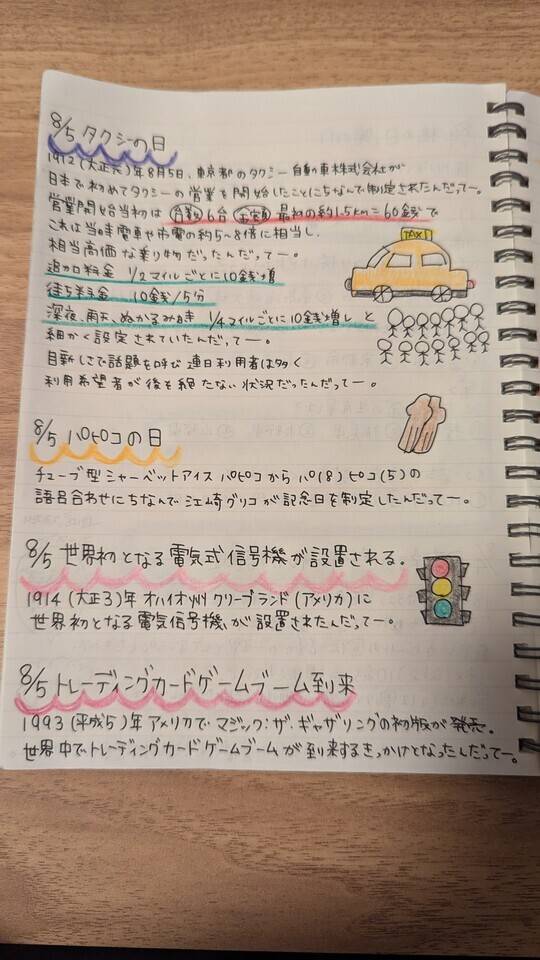 8/5 タクシーの日
1912(大正元)年8月5日、東京都のタクシー自動車株式会社が
日本で初めてタクシーの営業を開始したことにちなんで制定されたんだってー。
営業開始当初は 台数6台 金額 最初の約1.5km=60銭で
これは当時電車や市電の約5~8倍に相当し、
相当高価な乗り物だったんだってー。
追加料金 1/2マイルごとに10銭増
待ち料金 10銭/5分
深夜、雨天、ぬかるみ時き 1/4マイルごとに10銭増し と
細かく設定されていたんだってー。
目新しさで話題を呼び 連日利用者は多く
利用希望者が後を絶たない状況だったんだってー。
TAXI
8/5 パピコの日
チューブ型シャーベットアイス パピコから パ(8) ピコ(5)の
語呂合わせにちなんで 江崎グリコが記念日を制定したんだってー。
8/5 世界初となる電気式信号機が設置される。
1914(大正3)年 オハイオ州 クリーブランド(アメリカ)に
世界初となる電気信号機が設置されたんだってー。
8/5 トレーディングカードゲームブーム到来
1993(平成5)年アメリカで マジック:ザ・ギャザリングの初版が発売。
世界中でトレーディングカードゲームブームが到来するきっかけとなったんだってー。